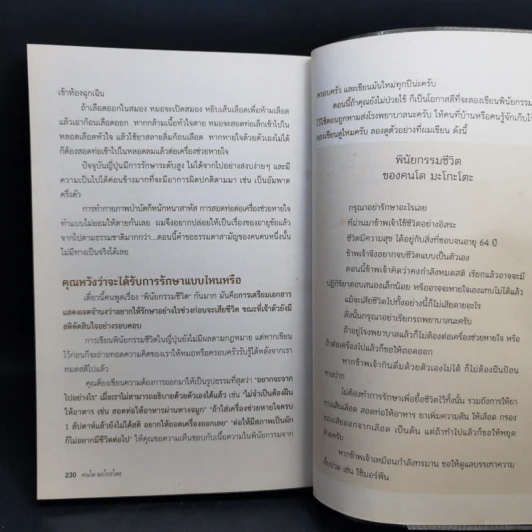 เข้าห้องฉุกเฉิน
ถ้าเลือดออกในสมอง หมอจะเปิดสมอง หยิบเส้นเลือดเพื่อห้ามเลือด
แล้วเอาก้อนเลือดออก หากกล้ามเนื้อหัวใจตาย หมอจะสอดท่อเล็กเข้าไปใน
หลอดเลือดหัวใจ แล้วใช้ยาสลายลิ่มก้อนเลือด หากหายใจด้วยตัวเองไม่ได้
ก็ต้องสอดท่อเข้าไปในหลอดลมแล้วต่อเครื่องช่วยหายใจ
ปัจจุบันญี่ปุ่นมีการรักษาระดับสูง ไม่ได้จากไปอย่างสงบง่ายๆ และมี
ความเป็นไปได้ค่อนข้างมากที่จะมีอาการผิดปกติตามมา เช่น เป็นอัมพาต
ครึ่งตัว
การทำกายภาพบำบัดก็หนักหนาสาหัส การสอดท่อต่อเครื่องช่วยหายใจ
ทำแบบไม่ยอมให้ตายกันเลย ผมจึงอยากปล่อยให้เป็นเรื่องของอายุขัยแล้ว
จากไปตามธรรมชาติมากกว่า...ตอนนี้คำขอธรรมดาสามัญของคนคนหนึ่งนั้น
ไม่มีทางเป็นจริงได้เลย
คุณหวังว่าจะได้รับการรักษาแบบไหนหรือ
เดี๋ยวนี้คนพูดเรื่อง "พินัยกรรมชีวิต" กันมาก มันคือการเตรียมเอกสาร
แสดงเจตจำนงว่าอยากให้รักษาอย่างไรช่วงก่อนจะเสียชีวิต ขณะที่เจ้าตัวยังมี
สติคิดตัดสินใจอย่างรอบคอบ
การเขียนพินัยกรรมชีวิตในญี่ปุ่นยังไม่มีผลตามกฎหมาย แต่หากเขียน
ไว้ก่อนก็จะถ่ายทอดความคิดของเราให้หมอหรือครอบครัวรับรู้ได้หลังจากเรา
หมดสติไปแล้ว
คุณต้องเขียนความต้องการออกมาให้เป็นรูปธรรมที่สุดว่า "อยากจะจาก
ไปอย่างไร" เมื่อเราไม่สามารถอธิบายด้วยตัวเองได้แล้ว เช่น "ไม่จำเป็นต้องฝืน
ให้อาหาร เช่น สอดท่อให้อาหารผ่านทางจมูก" "ถ้าใส่เครื่องช่วยหายใจครบ
1 สัปดาห์แล้วยังไม่ได้สติ อยากให้ถอดเครื่องออกเลย" "ต่อให้มีสภาพเป็นผัก
ก็ไม่อยากมีชีวิตต่อไป" ให้คุณขอความเห็นชอบกับเนื้อความในพินัยกรรมจาก
230 คนโด มะโกะโตะ
ครอบครัว และเขียนมันใหม่ทุกปีนะครับ
ตอนนี้ถ้าคุณยังไม่ป่วยไข้ ก็เป็นโอกาสดีที่จะลองเขียนพินัยกรรม
ไว้ใช้ตอนถูกหามส่งโรงพยาบาลนะครับ ให้คนที่บ้านหรือคนรู้จักเก็บไว้
ลองเขียนดูไหมครับ ลองดูตัวอย่างที่ผมเขียน ดังนี้
พินัยกรรมชีวิต
ของคนโด มะโกะโตะ
กรุณาอย่ารักษาอะไรเลย
ที่ผ่านมาข้าพเจ้าใช้ชีวิตอย่างอิสระ
ชีวิตมีความสุข ได้อยู่กับสิ่งที่ชอบจนอายุ 64 ปี
ข้าพเจ้าจึงอยากจบชีวิตแบบเป็นตัวเอง
ตอนนี้ข้าพเจ้าคิดว่าคงกำลังหมดสติ เรียกแล้วอาจจะมี
ปฏิกิริยาตอบสนองเล็กน้อย หรืออาจจะหายใจเองแทบไม่ได้แล้ว
แม้จะเสียชีวิตไปทั้งอย่างนี้ก็ไม่เสียดายอะไร
ดังนั้นกรุณาอย่าเรียกรถพยาบาลนะครับ
ถ้าอยู่โรงพยาบาลแล้วก็ไม่ต้องต่อเครื่องช่วยหายใจ หรือ
ถ้าต่อเครื่องไปแล้วก็ขอให้ถอดออก
หากข้าพเจ้ากินดื่มด้วยตัวเองไม่ได้ ก็ไม่ต้องฝืนป้อน
ทางปาก
ไม่ต้องทำการรักษาเพื่อยื้อชีวิตไว้ทั้งนั้น รวมถึงการให้ยา
ทางเส้นเลือด สอดท่อให้อาหาร ยาเพิ่มความดัน ให้เลือด กรอง
ของเสียออกจากเลือด เป็นต้น แต่ถ้าทำไปแล้วก็ขอให้หยุด
ด้วยครับ
หากข้าพเจ้าเหมือนกำลังทรมาน ขอให้ดูแลบรรเทาความ
เจ็บปวด เช่น ใช้มอร์ฟีน